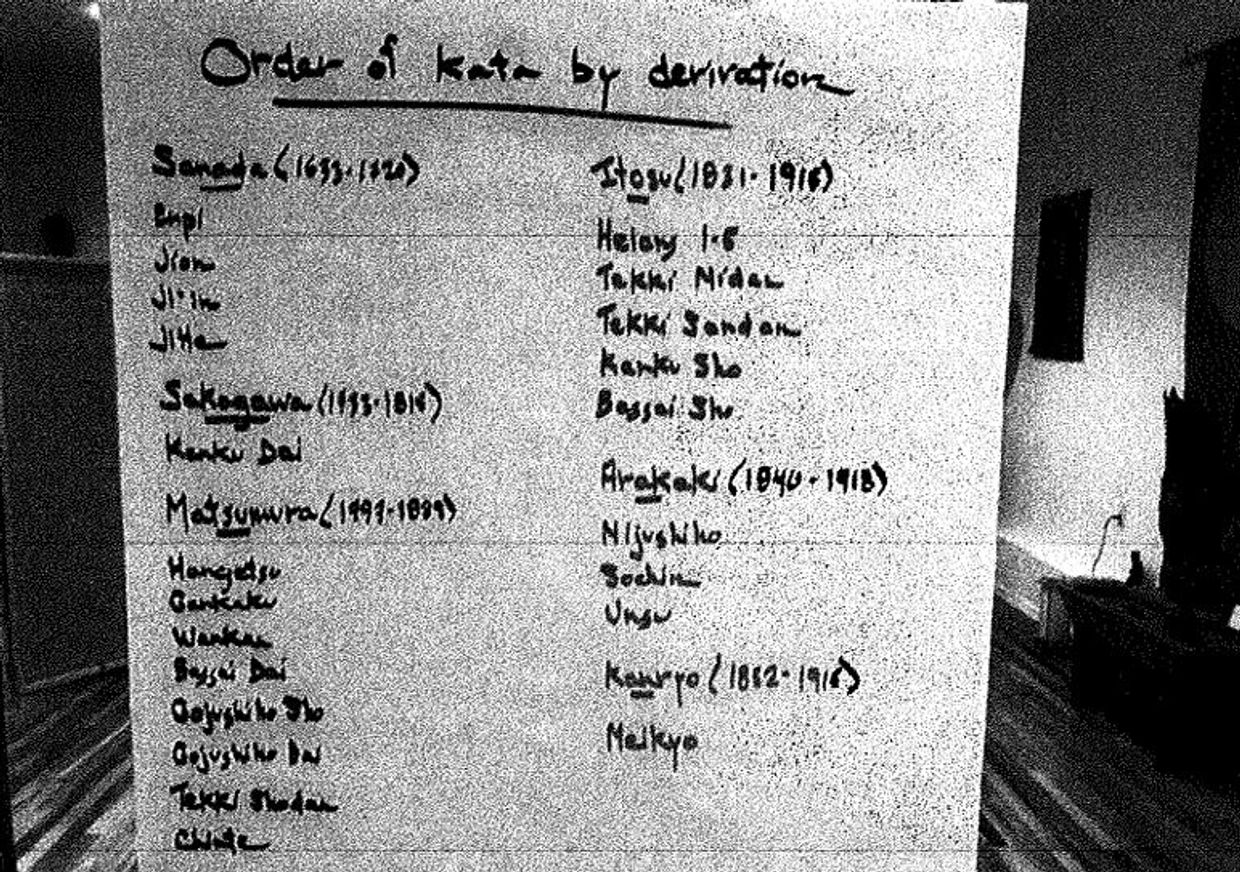 Order of kata by derivation
Sanada
Enpi
Jion
Ji'in
Jitte
Sakogawa
Kanku Dai
Matsumura
Hangetsu
Gankaku
Wankan
Bassai Dai
Gojushiho Sho
Gojushiho Dai
Tekki Shodan
Chinte
Itosu (1831-1916)
Heian 1-5
Tekki Nidan
Tekki Sandan
Kanku Sho
Bassai Sho
Arakaki (1840-1918)
Nijushiho
Sochin
Unsu
Kanryo (1852-1916)
Meikyo